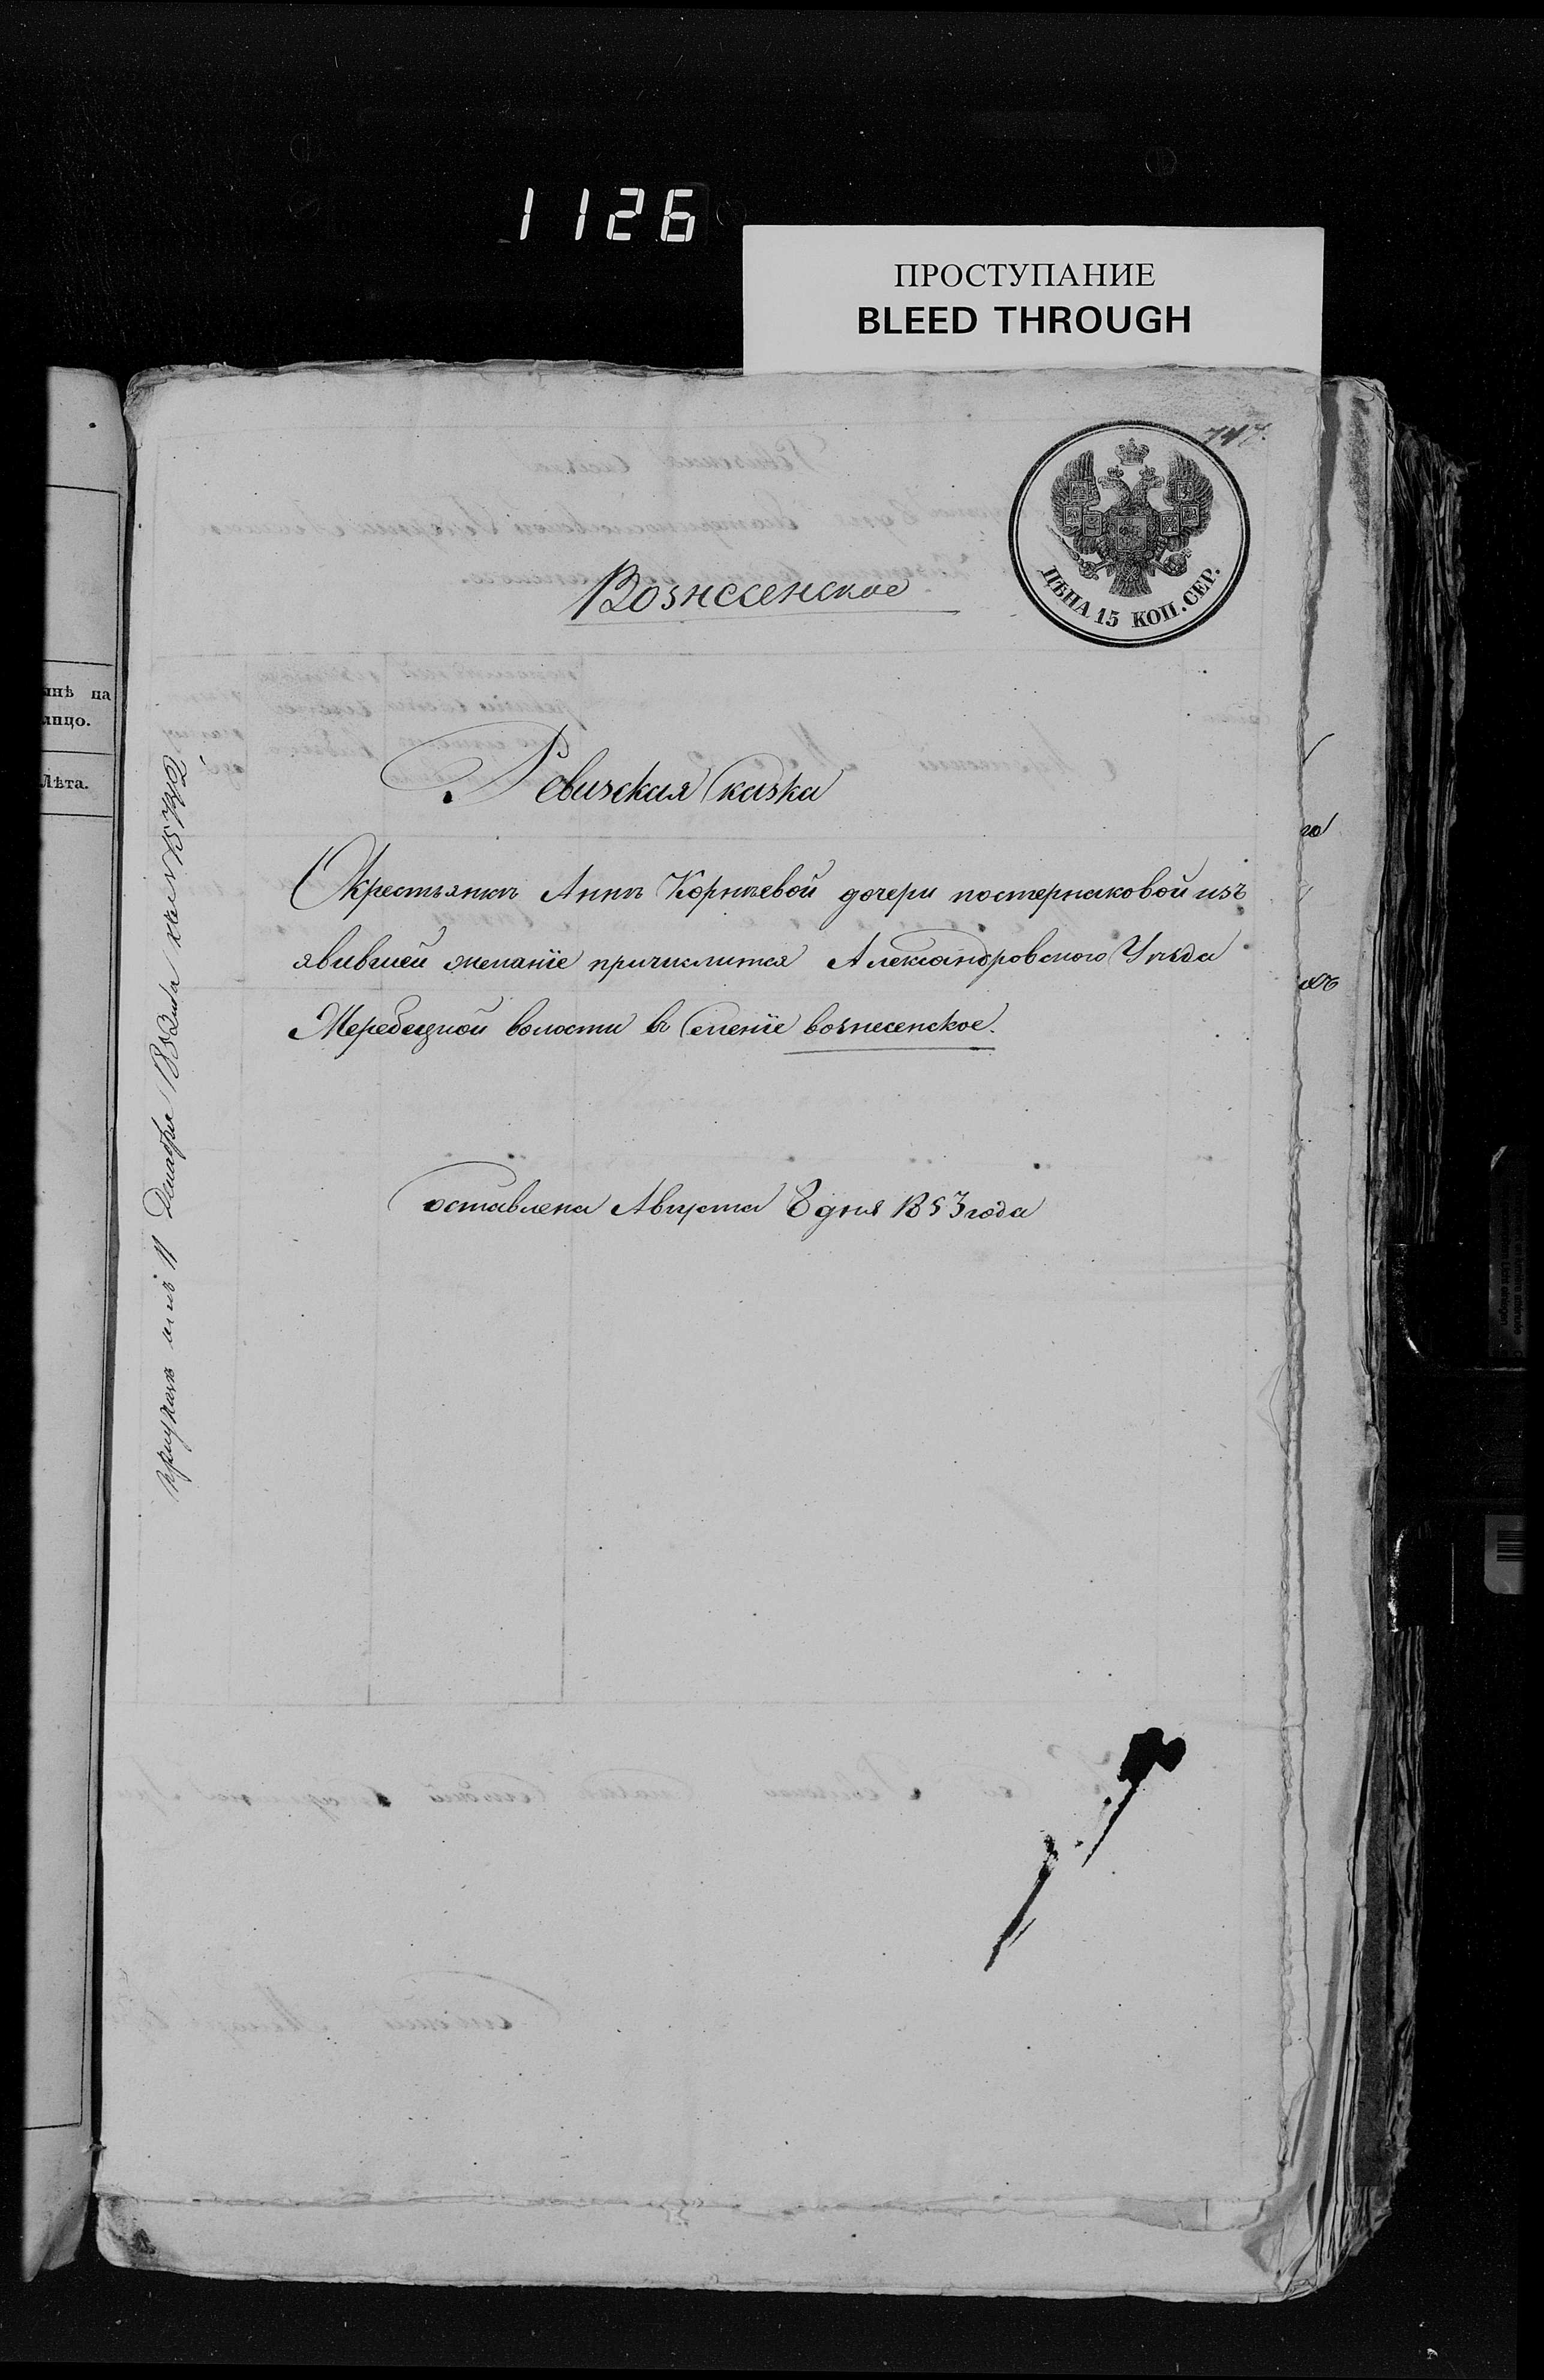 1126
ПРОСТУПАНИЕ
BLEED THROUGH
717.
ЦѢНА 15 КОП. СЕР.
Вознесенское
Ревизская Сказка
О крестьянкѣ Аннѣ Корнѣевой дочери постернаковой изъ
явившей желаніе причислится Александровского Уѣзда
Жеребецкой волости в Селеніе вознесенское.
Составлена Августа 8 дня 1853 года
отъ 11 Декабря 1852 года
лицо.
Лѣта.